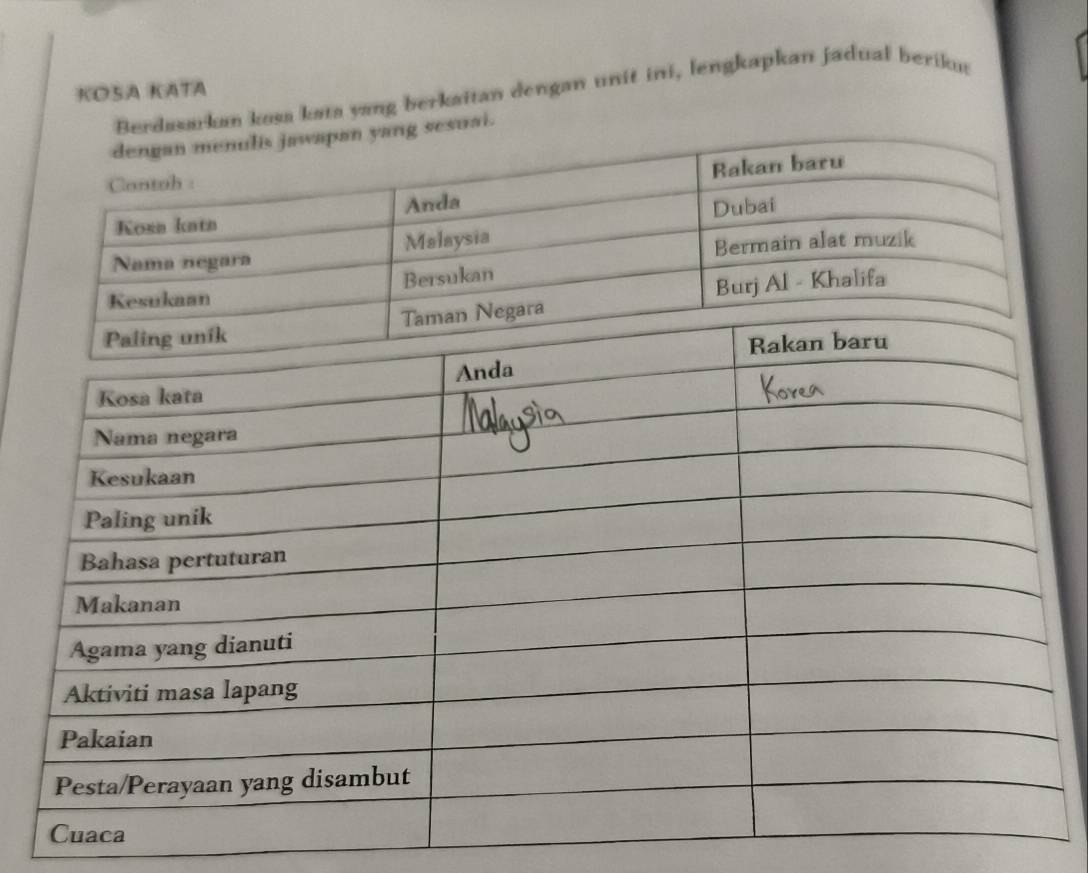 KOSA KATA
Berdasarkan kosa kata yang berkaitan dengan unit ini, lengkapkan jadual berikut
dengan menulis jawapan yang sesuai.
Contoh :
Kosa kata Anda Rakan baru
Nama negara Malaysia Dubai
Kesukaan Bersukan Bermain alat muzik
Paling unik Taman Negara Burj Al - Khalifa
Kosa kata Anda Rakan baru
Nama negara Malaysia Korea
Kesukaan
Paling unik
Bahasa pertuturan
Makanan
Agama yang dianuti
Aktiviti masa lapang
Pakaian
Pesta/Perayaan yang disambut
Cuaca